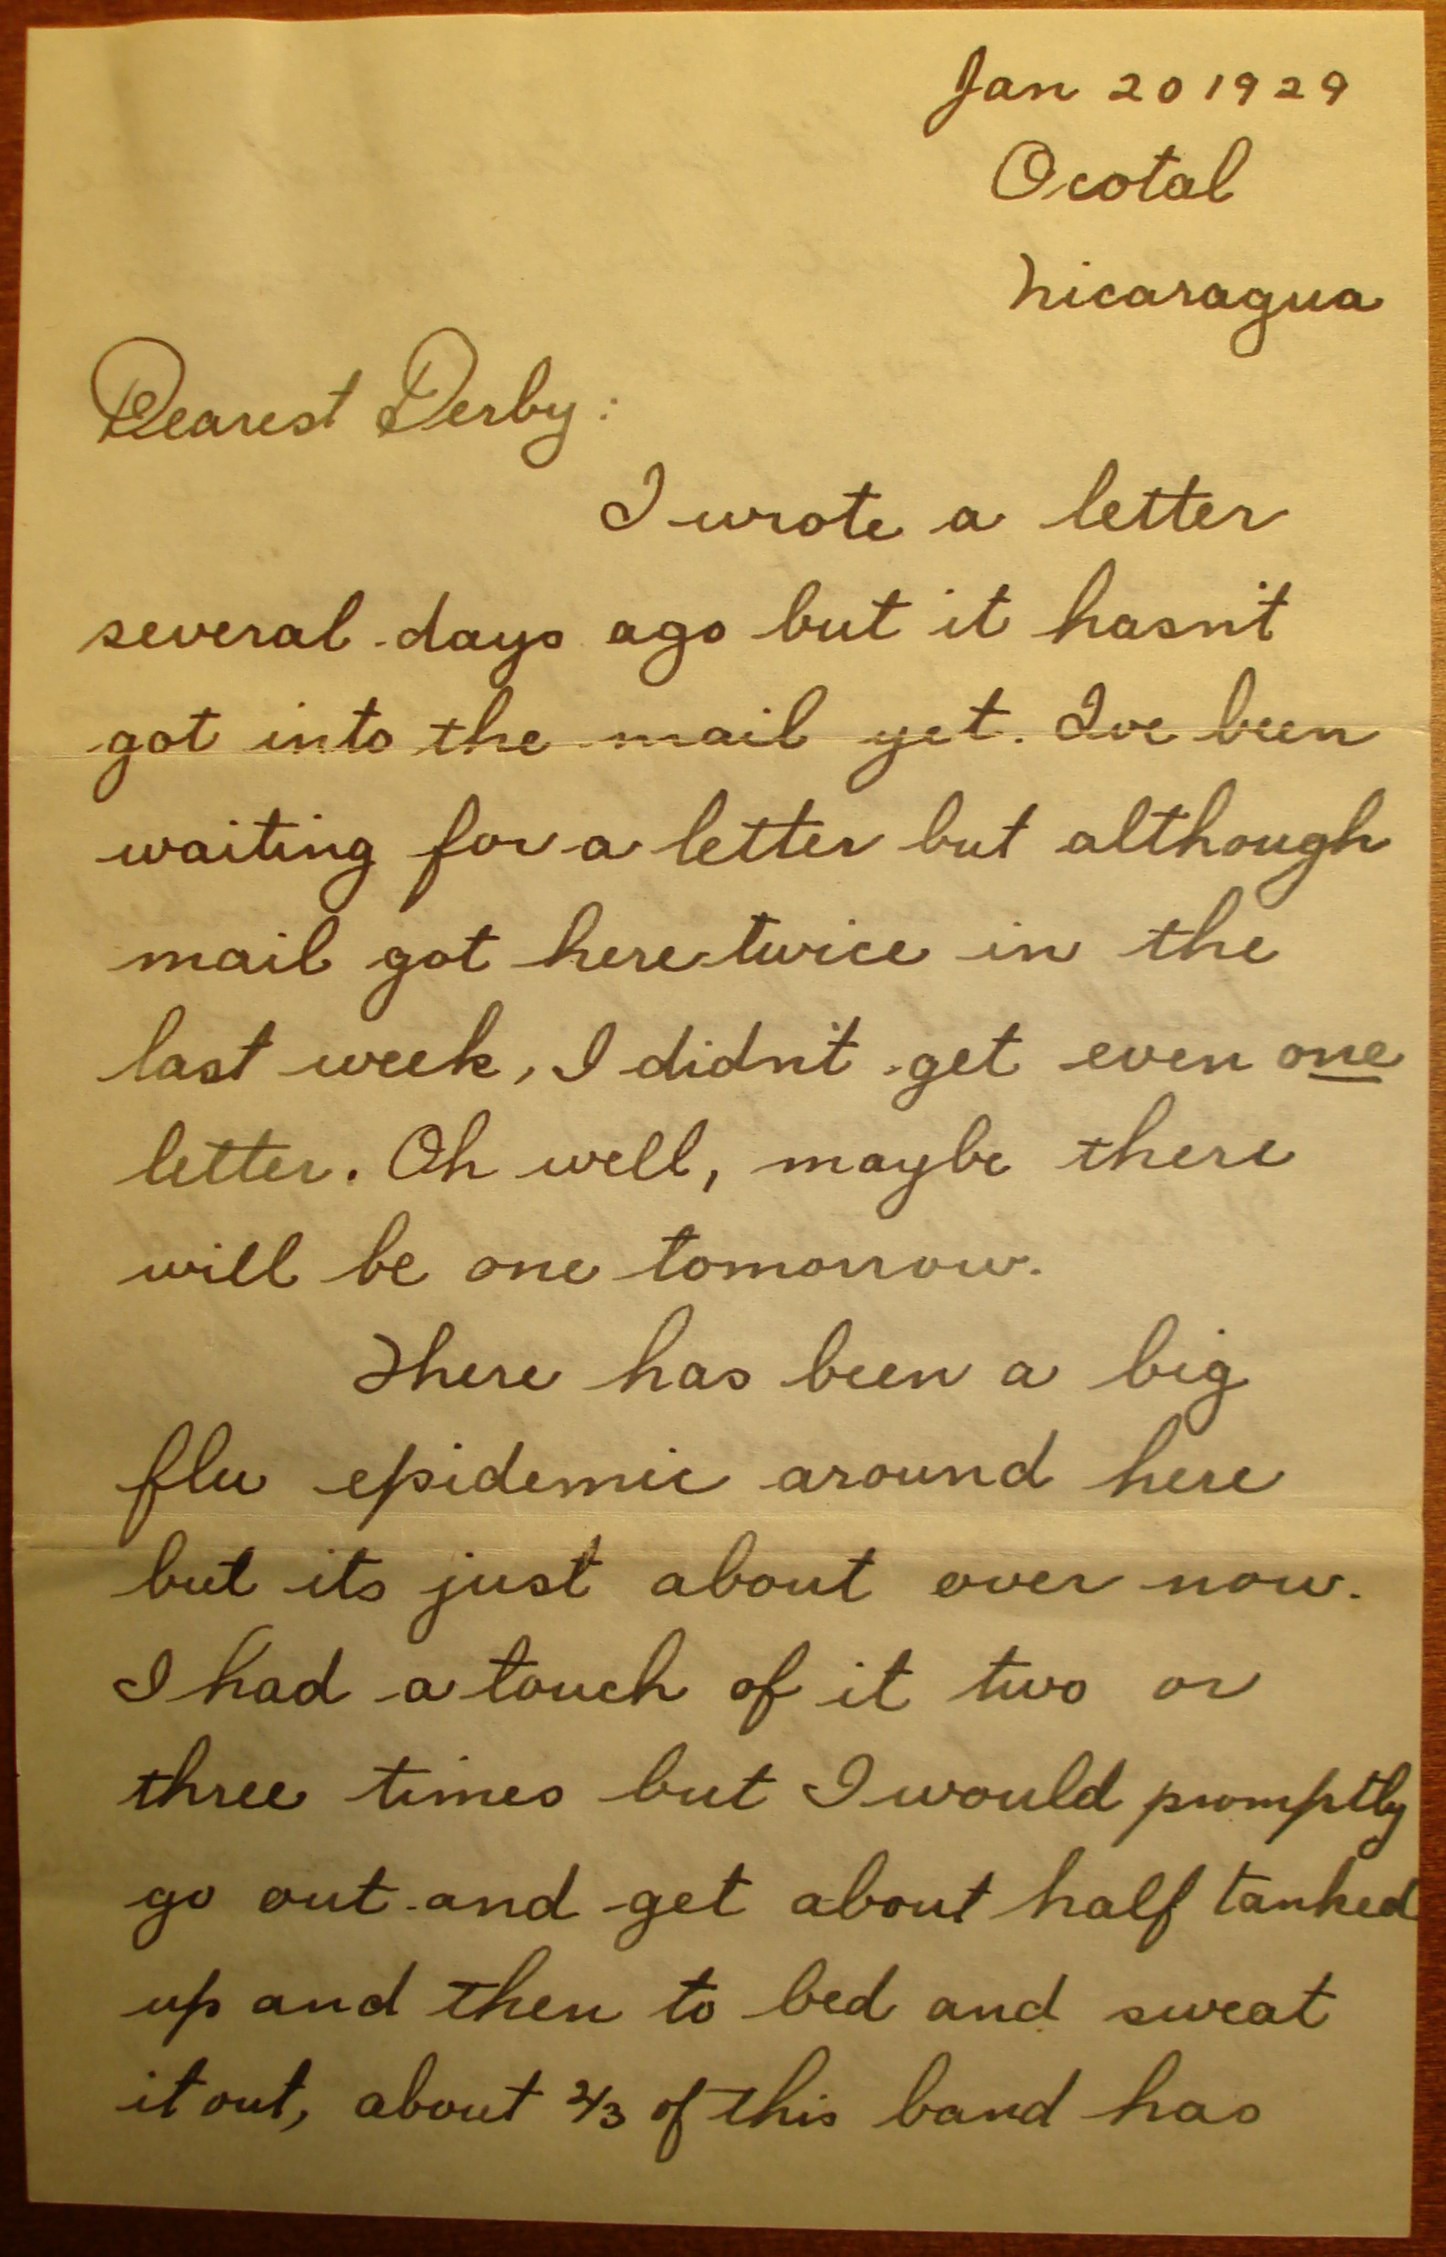 Jan 20 1929
Ocotal
Nicaragua
Dearest Derby:
I wrote a letter
several days ago but it hasn't
got into the mail yet. I've been
waiting for a letter but although
mail got here twice in the
last week, I didn't get even one
letter. Oh well, maybe there
will be one tomorrow.
There has been a big
flu epidemic around here
but its just about over now.
I had a touch of it two or
three times but I would promptly
go out and get about half tanked
up and then to bed and sweat
it out, about 2/3 of this band has